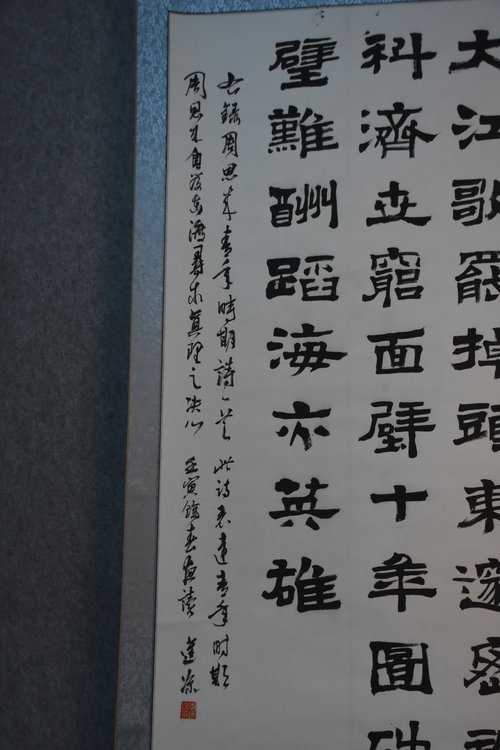 大江歌罷掉頭東邃密
科濟世窮面壁十年圖破
壁難酬蹈海亦英雄
右録周恩来青年時期詩一首 此詩表達青年时期
周恩来 尋求真理之决心 壬寅